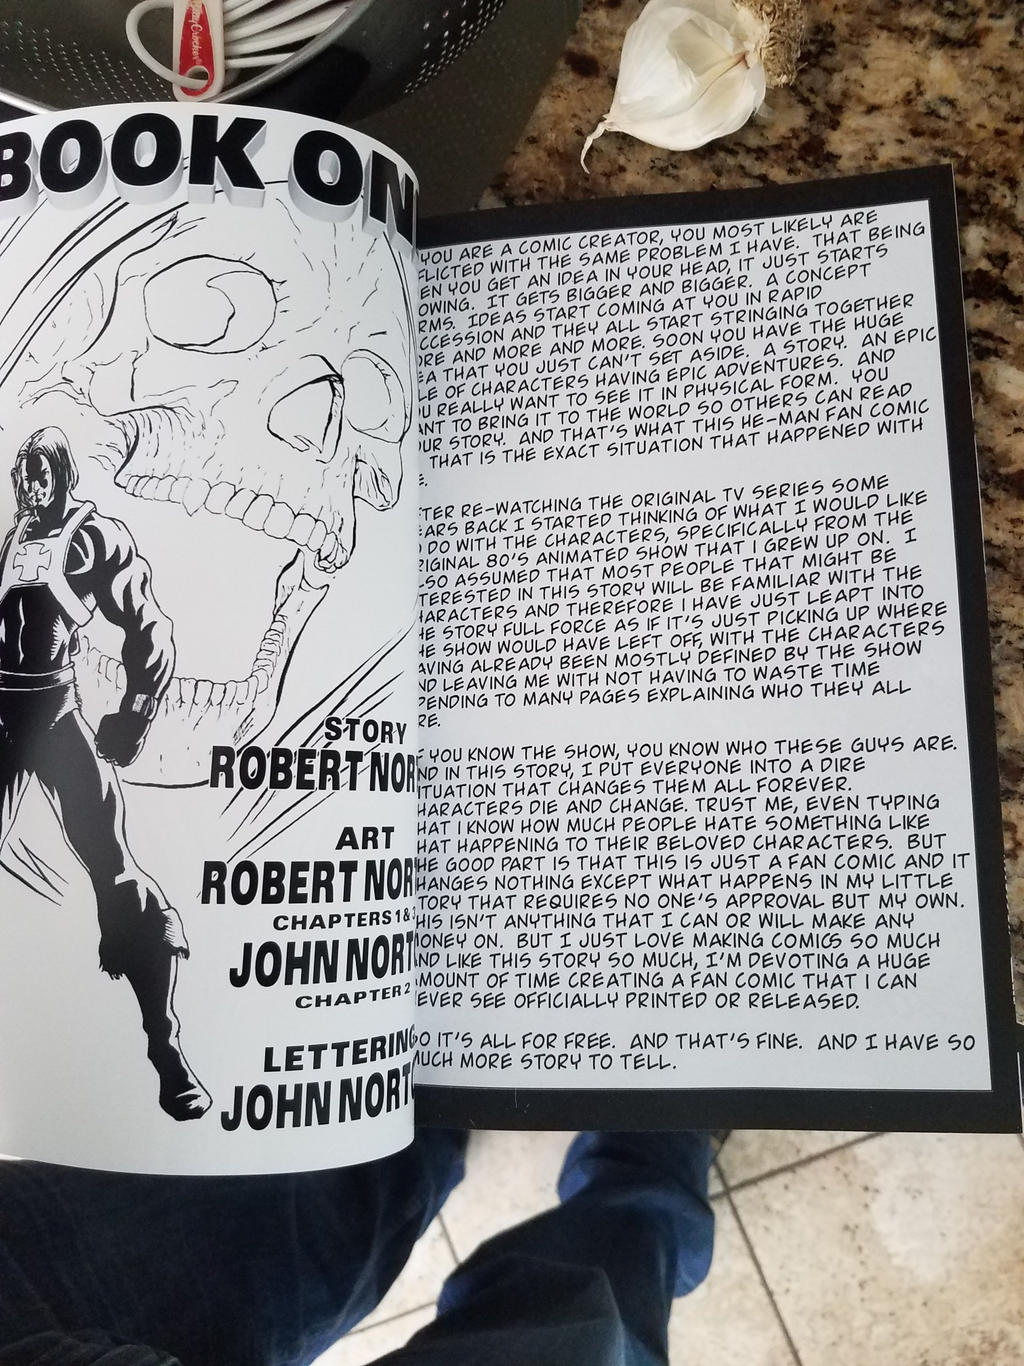 BOOK ON
STORY
ROBERT NOR
ART
ROBERT NOR
CHAPTERS 1 & 3
JOHN NORT
CHAPTER 2
LETTERING
JOHN NORTO
YOU ARE A COMIC CREATOR, YOU MOST LIKELY ARE
FLICTED WITH THE SAME PROBLEM I HAVE. THAT BEING
EN YOU GET AN IDEA IN YOUR HEAD, IT JUST STARTS
OWING. IT GETS BIGGER AND BIGGER. A CONCEPT
RMS. IDEAS START COMING AT YOU IN RAPID
CCESSION AND THEY ALL START STRINGING TOGETHER
ORE AND MORE AND MORE. SOON YOU HAVE THE HUGE
EA THAT YOU JUST CAN'T SET ASIDE. A STORY. AN EPIC
LE OF CHARACTERS HAVING EPIC ADVENTURES. AND
U REALLY WANT TO SEE IT IN PHYSICAL FORM. YOU
ANT TO BRING IT TO THE WORLD SO OTHERS CAN READ
OUR STORY. AND THAT'S WHAT THIS HE-MAN FAN COMIC
THAT IS THE EXACT SITUATION THAT HAPPENED WITH
E.
TER RE-WATCHING THE ORIGINAL TV SERIES SOME
EARS BACK I STARTED THINKING OF WHAT I WOULD LIKE
DO WITH THE CHARACTERS, SPECIFICALLY FROM THE
RIGINAL 80'S ANIMATED SHOW THAT I GREW UP ON. I
SO ASSUMED THAT MOST PEOPLE THAT MIGHT BE
TERESTED IN THIS STORY WILL BE FAMILIAR WITH THE
HARACTERS AND THEREFORE I HAVE JUST LEAPT INTO
HE STORY FULL FORCE AS IF IT'S JUST PICKING UP WHERE
HE SHOW WOULD HAVE LEFT OFF, WITH THE CHARACTERS
AVING ALREADY BEEN MOSTLY DEFINED BY THE SHOW
ND LEAVING ME WITH NOT HAVING TO WASTE TIME
PENDING TO MANY PAGES EXPLAINING WHO THEY ALL
RE.
F YOU KNOW THE SHOW, YOU KNOW WHO THESE GUYS ARE.
ND IN THIS STORY, I PUT EVERYONE INTO A DIRE
ITUATION THAT CHANGES THEM ALL FOREVER.
HARACTERS DIE AND CHANGE. TRUST ME, EVEN TYPING
HAT I KNOW HOW MUCH PEOPLE HATE SOMETHING LIKE
HAT HAPPENING TO THEIR BELOVED CHARACTERS. BUT
HE GOOD PART IS THAT THIS IS JUST A FAN COMIC AND IT
HANGES NOTHING EXCEPT WHAT HAPPENS IN MY LITTLE
TORY THAT REQUIRES NO ONE'S APPROVAL BUT MY OWN.
HIS ISN'T ANYTHING THAT I CAN OR WILL MAKE ANY
MONEY ON. BUT I JUST LOVE MAKING COMICS SO MUCH
ND LIKE THIS STORY SO MUCH, I'M DEVOTING A HUGE
MOUNT OF TIME CREATING A FAN COMIC THAT I CAN
EVER SEE OFFICIALLY PRINTED OR RELEASED.
SO IT'S ALL FOR FREE. AND THAT'S FINE. AND I HAVE SO
MUCH MORE STORY TO TELL.